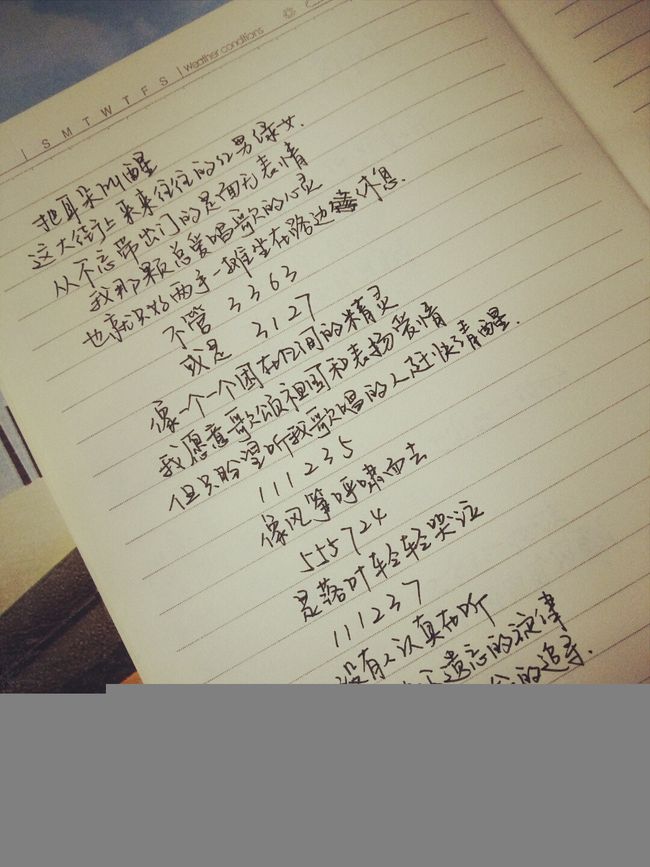 S M T W T F S | Weather conditions
把耳朵叫醒
这大街上来来往往的红男绿女.
从不忘带出门的是面无表情
我那颗总爱唱歌的心灵
也就只好两手一摊坐在路边休息.
不管 3363
或是 3127
像一个一个困在人间的精灵
我愿意歌颂祖国和表扬爱情
但只盼望听我歌唱的人赶快清醒.
111235
像风筝呼啸而去
555724
是落叶轻轻哭泣
111237
没有人认真在听
遗忘的旋律
的追寻.